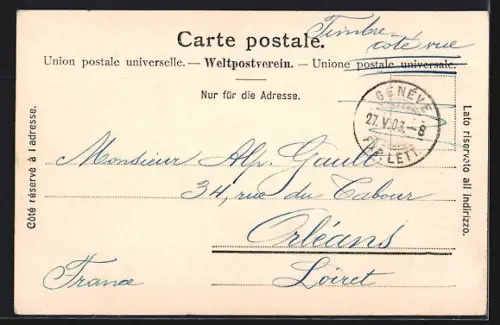 Timbre
coté vue
Carte postale.
Union postale universelle. — Weltpostverein. — Unione postale universale.
Nur für die Adresse.
GENÈVE
27.V.03.–8
EXP. LETT.
Côté réservé à l'adresse.
Lato riservato all indirizzo.
Monsieur Alp. Gault
34, rue du Tabour
Orléans
France
Loiret